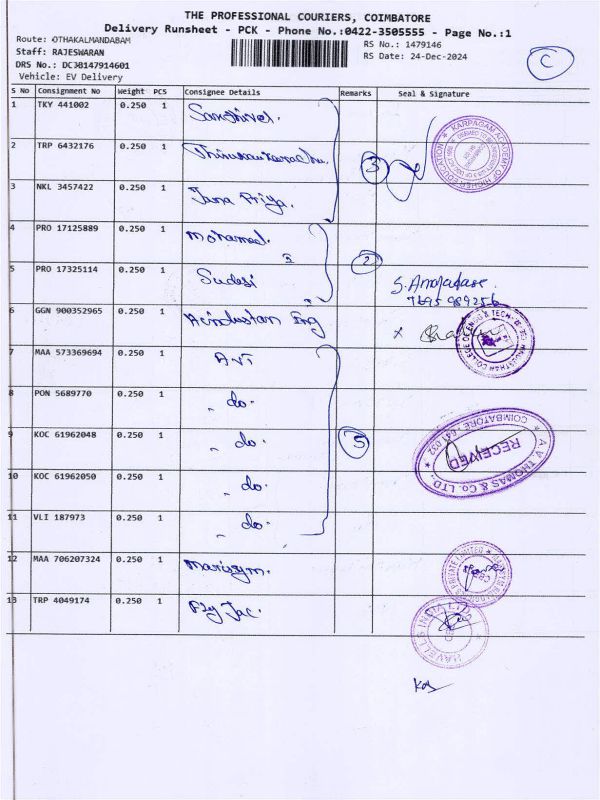 THE PROFESSIONAL COURIERS, COIMBATORE
Delivery Runsheet - PCK - Phone No.:0422-3505555 - Page No.:1
Route: OTHAKALMANDABAM
Staff: RAJESWARAN
DRS No.: DC38147914601
Vehicle: EV Delivery
RS No.: 1479146
RS Date: 24-Dec-2024
C
S No Consignment No Weight PCS Consignee Details Remarks Seal & Signature
1 TKY 441002 0.250 1
2 TRP 6432176 0.250 1 3
3 NKL 3457422 0.250 1 Jana Priya.
KARPAGAM ACADEMY OF HIGHER EDUCATION
4 PRO 17125889 0.250 1 Mohamed. 2
5 PRO 17325114 0.250 1 Sudesi
6 GGN 900352965 0.250 1 Hindustan Eng
7 MAA 573369694 0.250 1 AVT
8 PON 5689770 0.250 1 " do.
9 KOC 61962048 0.250 1 " do. 5
10 KOC 61962050 0.250 1 " do.
11 VLI 187973 0.250 1 " do.
A.V. THOMAS & Co. LTD.
COIMBATORE - 641 032
RECEIVED
12 MAA 706207324 0.250 1
13 TRP 4049174 0.250 1 Fly Jac.
HAVELLS INDIA LTD